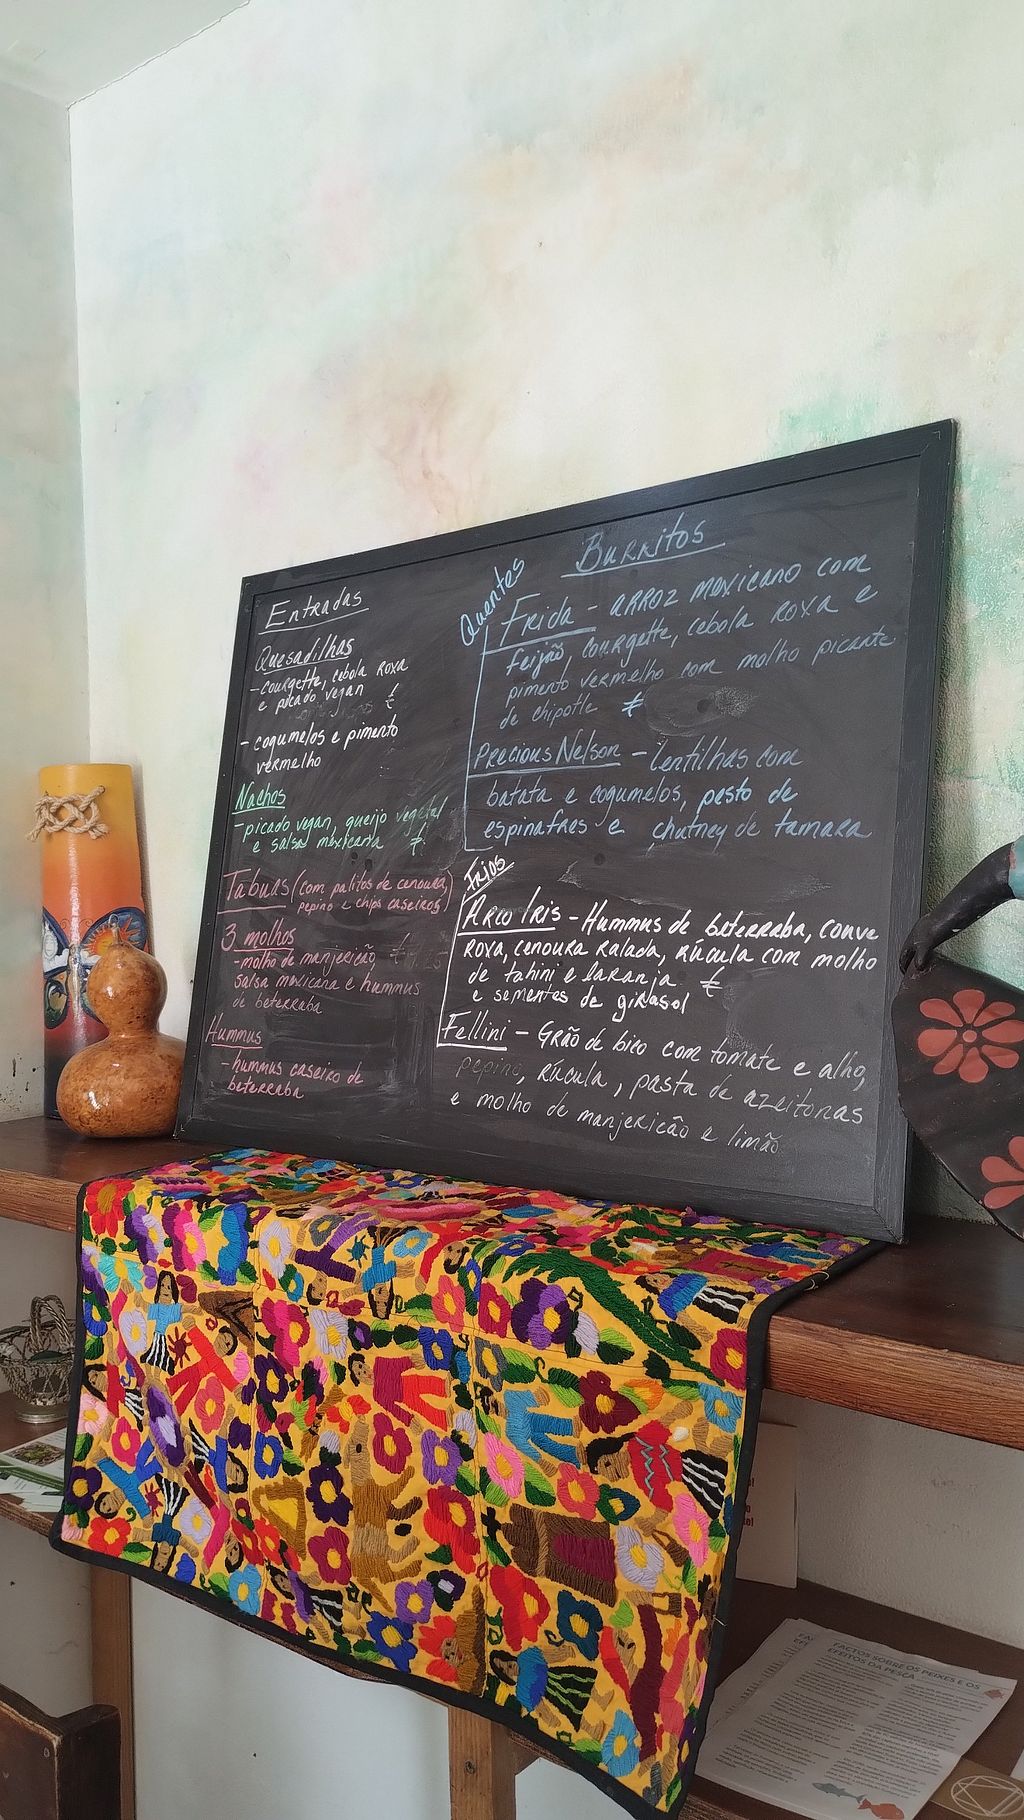 Entradas
Quesadilhas
- courgette, cebola roxa
e picado vegan €
- cogumelos e pimento
vermelho
Nachos
- picado vegan, queijo vegetal
e salsa mexicana €
Tabuas (com palitos de cenoura,
pepino e chips caseiros)
3 molhos
- molho de manjericão €
salsa mexicana e hummus
de beterraba
Hummus
- hummus caseiro de
beterraba
Burritos
Quentes
Frida - arroz mexicano com
feijão, courgette, cebola roxa e
pimento vermelho com molho picante
de chipotle €
Precious Nelson - lentilhas com
batata e cogumelos, pasto de
espinafres e chutney de tamara
Frios
Arco Iris - Hummus de beterraba, couve
roxa, cenoura ralada, rúcula com molho
de tahini e laranja €
e sementes de girasol
Fellini - Grão de bico com tomate e alho,
pepino, rúcula, pasta de azeitonas
e molho de manjericão e limão
FACTOS SOBRE OS PEIXES E OS
EFEITOS DA PESCA